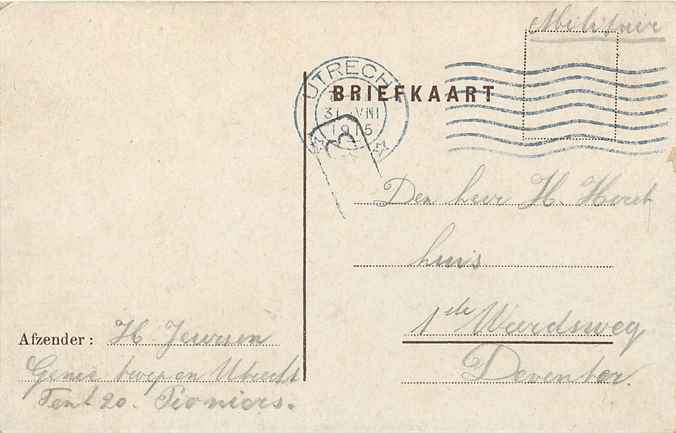 Militair
UTRECHT
31 VIII
1915
BRIEFKAART
Den heer H. Horst
huis
1de Weerdsweg
Deventer.
Afzender: H Jeursen
Genie troepen Utrecht
Tent 20. Pioniers.